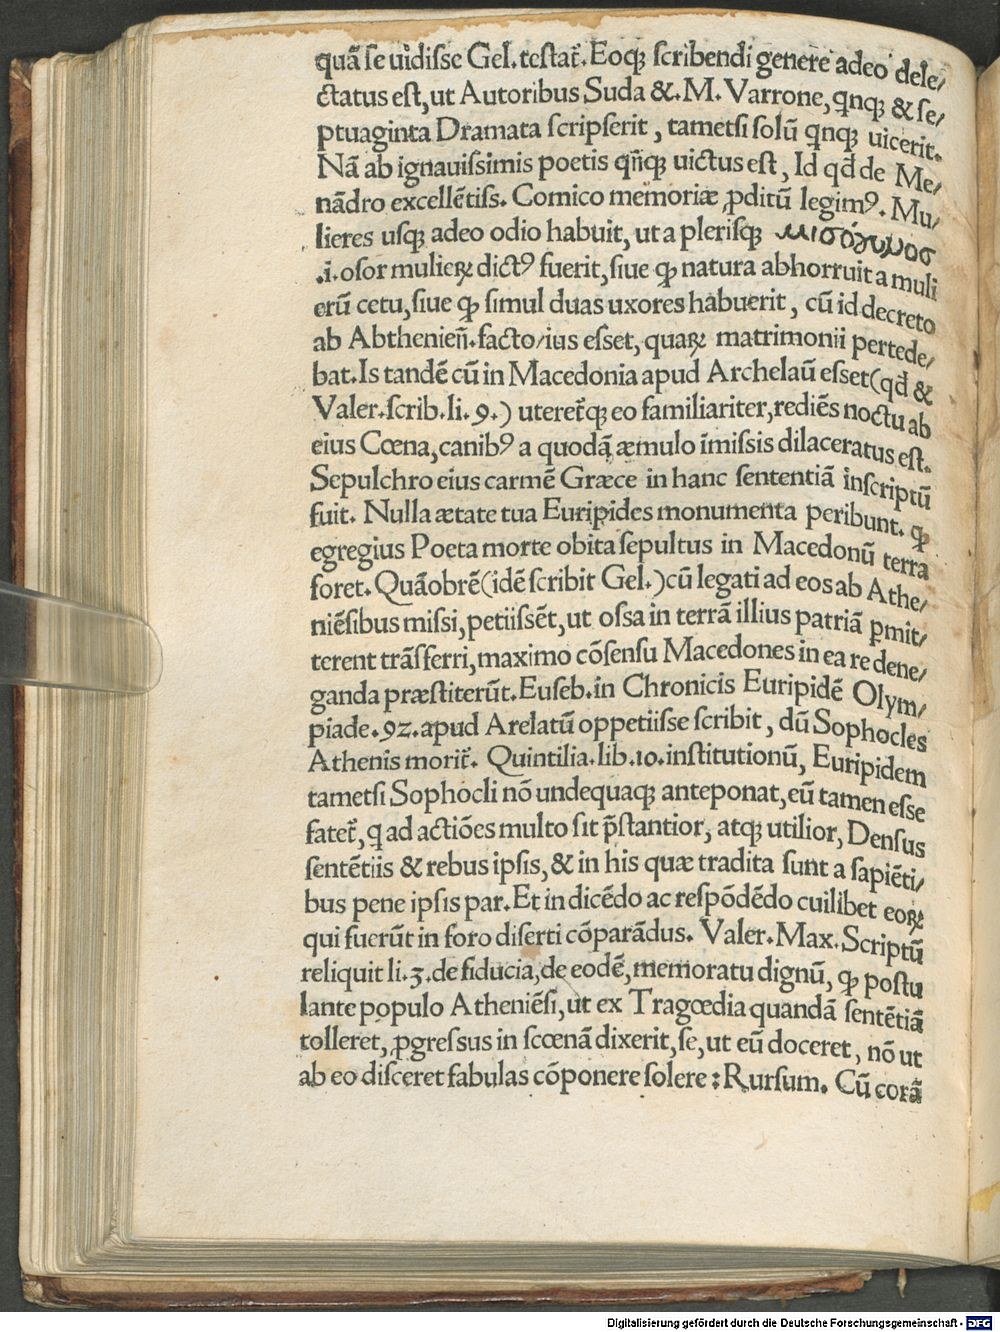 quã se uidisse Gel. testat᷑. Eoqꝫ scribendi genere adeo dele/
ctatus est, ut Autoribus Suda &. M. Varrone, qnqꝫ & se/
ptuaginta Dramata scripserit, tametsi solũ qnqꝫ uicerit.
Nã ab ignauissimis poetis qñqꝫ uictus est, Id qđ de Me/
nãdro excellẽtiss. Comico memoriæ ꝓditũ legimꝰ. Mu/
lieres usqꝫ adeo odio habuit, ut a plerisqꝫ μισόγυνος
.i. osor mulieꝝ dictꝰ fuerit, siue ꝙ natura abhorruit a muli
erũ cetu, siue ꝙ simul duas uxores habuerit, cũ id decreto
ab Abthenieñ. facto/ius esset, quaꝝ matrimonii pertede/
bat. Is tandẽ cũ in Macedonia apud Archelaũ esset (qđ &
Valer. scrib. li. 9.) uteret᷑qꝫ eo familiariter, rediẽs noctu ab
eius Cœna, canibꝰ a quodã æmulo ĩmissis dilaceratus est.
Sepulchro eius carmẽ Græce in hanc sententiã inscriptũ
fuit. Nulla ætate tua Euripides monumenta peribunt. ꝙ
egregius Poeta morte obita sepultus in Macedonũ terra
foret. Quãobrẽ (idẽ scribit Gel.) cũ legati ad eos ab Athe/
niẽsibus missi, petiissẽt, ut ossa in terrã illius patriã ꝑmit/
terent trãsferri, maximo cõsensu Macedones in ea re dene/
ganda præstiterũt. Euseb. in Chronicis Euripidẽ Olym/
piade. 92. apud Arelatũ oppetiisse scribit, dũ Sophocles
Athenis morit᷑. Quintilia. lib. 10. institutionũ, Euripidem
tametsi Sophocli nõ undequaqꝫ anteponat, eũ tamen esse
fatet᷑, q ad actiões multo sit p̃stantior, atqꝫ utilior, Densus
sentẽtiis & rebus ipsis, & in his quæ tradita sunt a sapiẽti/
bus pene ipsis par. Et in dicẽdo ac respõdẽdo cuilibet eoꝝ
qui fuerũt in foro diserti cõparãdus. Valer. Max. Scriptũ
reliquit li. 3. de fiducia, de eodẽ, memoratu dignũ, ꝙ postu
lante populo Atheniẽsi, ut ex Tragœdia quandã sentẽtiã
tolleret, ꝓgressus in scœnã dixerit, se, ut eũ doceret, nõ ut
ab eo disceret fabulas cõponere solere : Rursum. Cũ corã
Digitalisierung gefördert durch die Deutsche Forschungsgemeinschaft - DFG